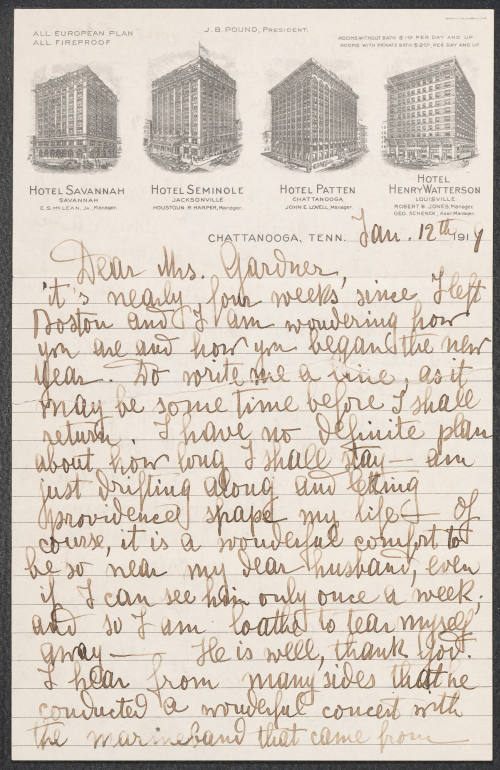 ALL EUROPEAN PLAN
ALL FIREPROOF
J. B. POUND, PRESIDENT.
ROOMS WITHOUT BATH $1.50 PER DAY AND UP
ROOMS WITH PRIVATE BATH $2.00 PER DAY AND UP
HOTEL SAVANNAH
SAVANNAH
HOTEL SEMINOLE
JACKSONVILLE
HOUSTOUN R. HARPER, Manager.
HOTEL PATTEN
CHATTANOOGA
JOHN E. LOVELL, Manager.
HOTEL
HENRY WATTERSON
LOUISVILLE
ROBERT B. JONES, Manager.
GEO. SCHENCK, Asst. Manager.
CHATTANOOGA, TENN. Jan. 12th 191
Dear Mrs. Gardner,
it's nearly four weeks since I left
Boston and I am wondering how
you are and how you began the new
year. Do write me a line, as it
may be some time before I shall
return. I have no definite plan
about how long I shall stay — am
just drifting along and letting
providence shape my life — Of
course, it is a wonderful comfort to
be so near my dear husband, even
if I can see him only once a week,
and so I am loathe to tear myself
away — He is well, thank God.
I hear from many sides that he
conducted a wonderful concert with
the marine band that came from